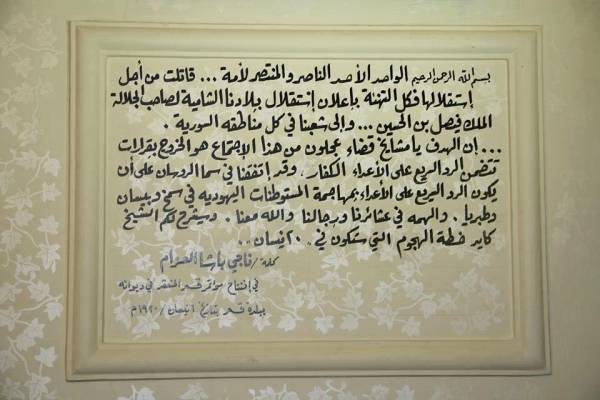 بسم الله الرحمن الرحيم الواحد الأحد الناصر والمنتصر لأمة ... قاتلت من أجل
إستقلالها فكل التهنئة بإعلان إستقلال بلادنا الشامية لصاحب الجلالة
الملك فيصل بن الحسين ... وإلى شعبنا في كل مناطقه السورية .
... إن الهدف يا مشايخ قضاء عجلون من هذا الإجتماع هو الخروج بقرارات
تتضمن الرد السريع على الأعداء الكفار، وقد إتفقنا في سما الروسان على أن
يكون الرد السريع على الأعداء بمهاجمة المستوطنات اليهودية في سمخ وبيسان
وطبريا . والهمه في عشائرنا ورجالنا والله معنا . وسيشرح لكم الشيخ
كايد خطة الهجوم التي ستكون في .. ٢٠ نيسان ..
كلمة / ناجي باشا العزام
في إفتتاح مؤتمر قم المنعقد في ديوانه
ببلدة قم بتاريخ ٦ نيسان / ١٩٢٠م